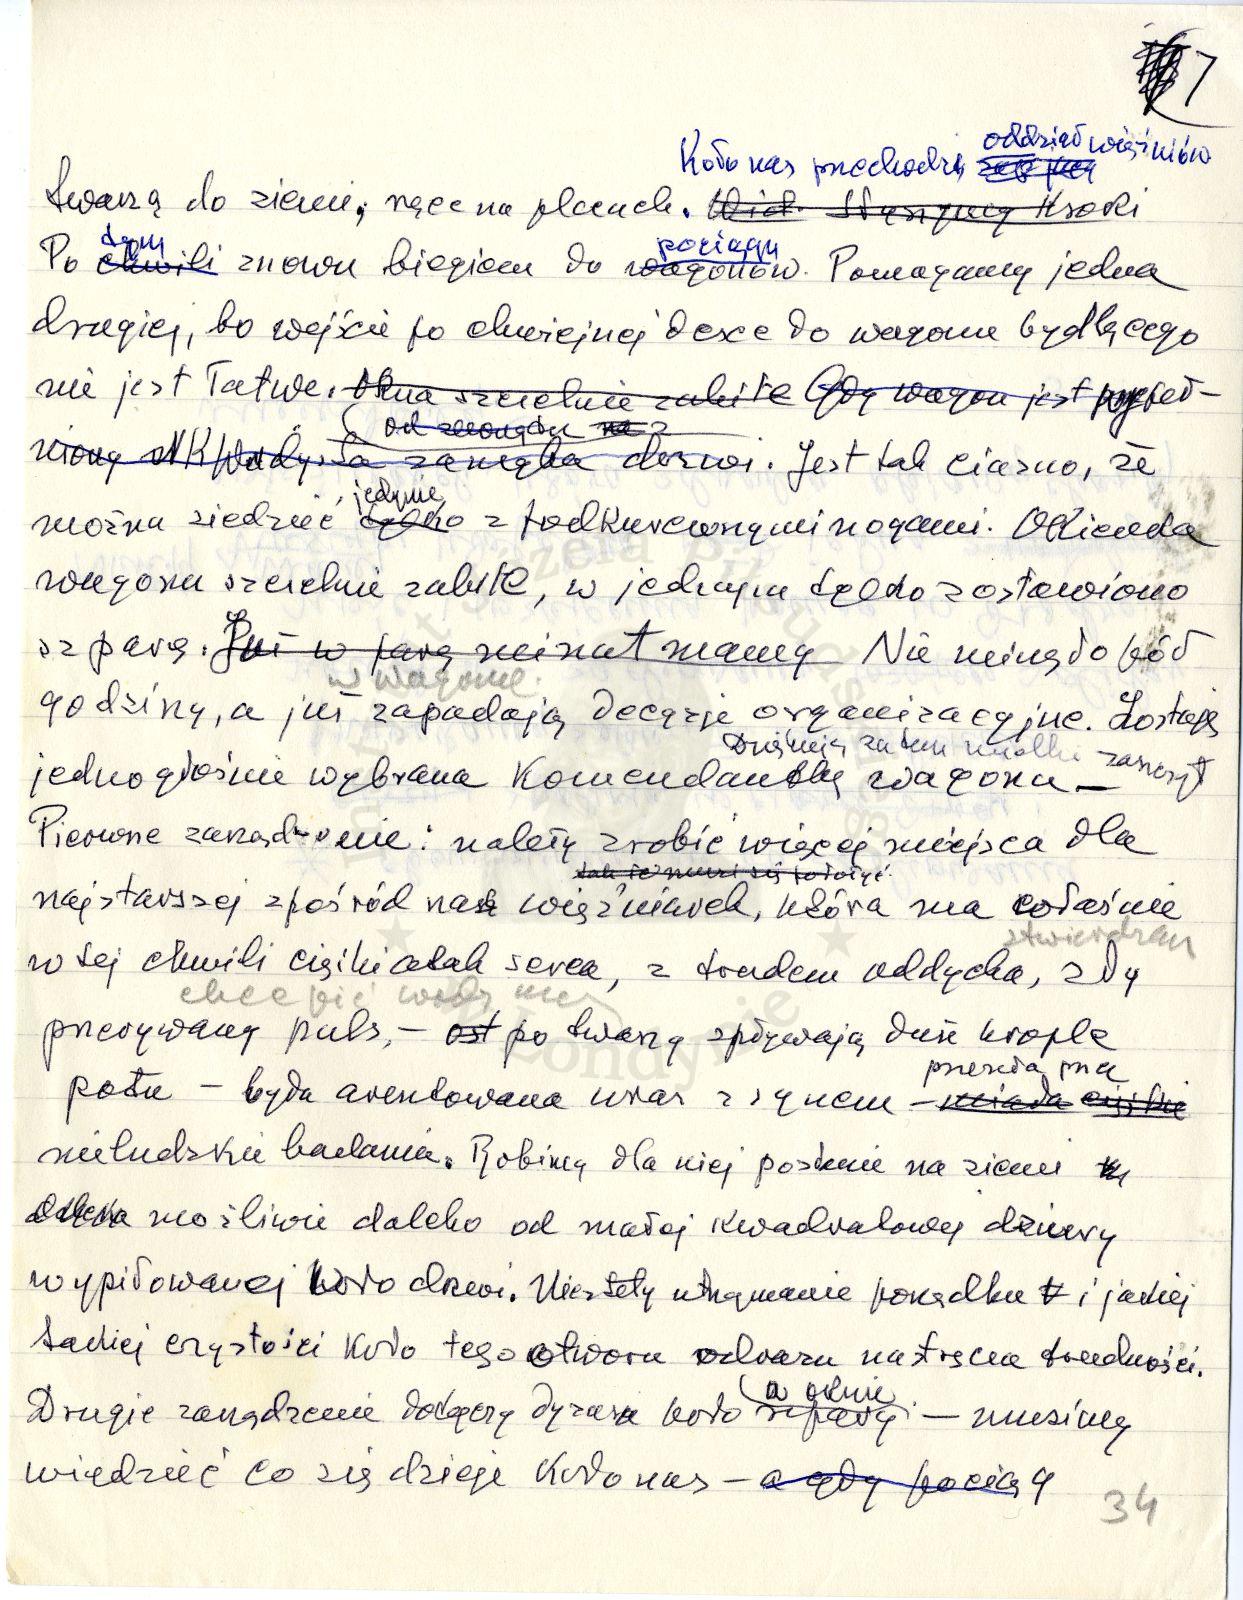 7
Koło nas przechodzi oddział więźniów
twarzą do ziemi, ręce na plecach. Słyszymy kroki
tym pociągu
Po chwili znowu biegiem do wagonów. Pomagamy jedna
drugiej, bo wejście po chwiejnej desce do wagonu bydlęcego
nie jest łatwe. Okna szczelnie zabite Gdy wagon jest przepeł-
od zewnątrz na
niony NKWdzista zamyka drzwi. Jest tak ciasno, że
jedynie
można siedzieć tylko z podkurczonymi nogami. Okienka
wagonu szczelnie zabite, w jednym tylko zostawiono
szparę. Już w parę minut mamy Nie minęło pół
w wagonie.
godziny, a już zapadają decyzje organizacyjne. Zostaję
zatem wielki zaszczyt
jednogłośnie wybrana Komendantką wagonu —
Pierwsze zarządzenie: należy zrobić więcej miejsca dla
tak że musi się położyć
najstarszej spośród nas więźniarek, która ma właśnie
stwierdzam
w tej chwili ciężki atak serca, z trudem oddycha, zły
chce pić wody
przerywany puls, — po twarzy spływają duże krople
przeszła
potu — była aresztowana wraz z synem — miała ciężkie
nieludzkie badania. Robimy dla niej posłanie na ziemi
możliwie daleko od małej kwadratowej dziury
wypiłowanej koło drzwi. Niestety utrzymanie porządku i jakiej
takiej czystości koło tego otworu odrazu nastręcza trudności.
w oknie
Drugie zarządzenie dotyczy dyżuru koło szpary — musimy
wiedzieć co się dzieje koło nas — a gdy pociąg
34